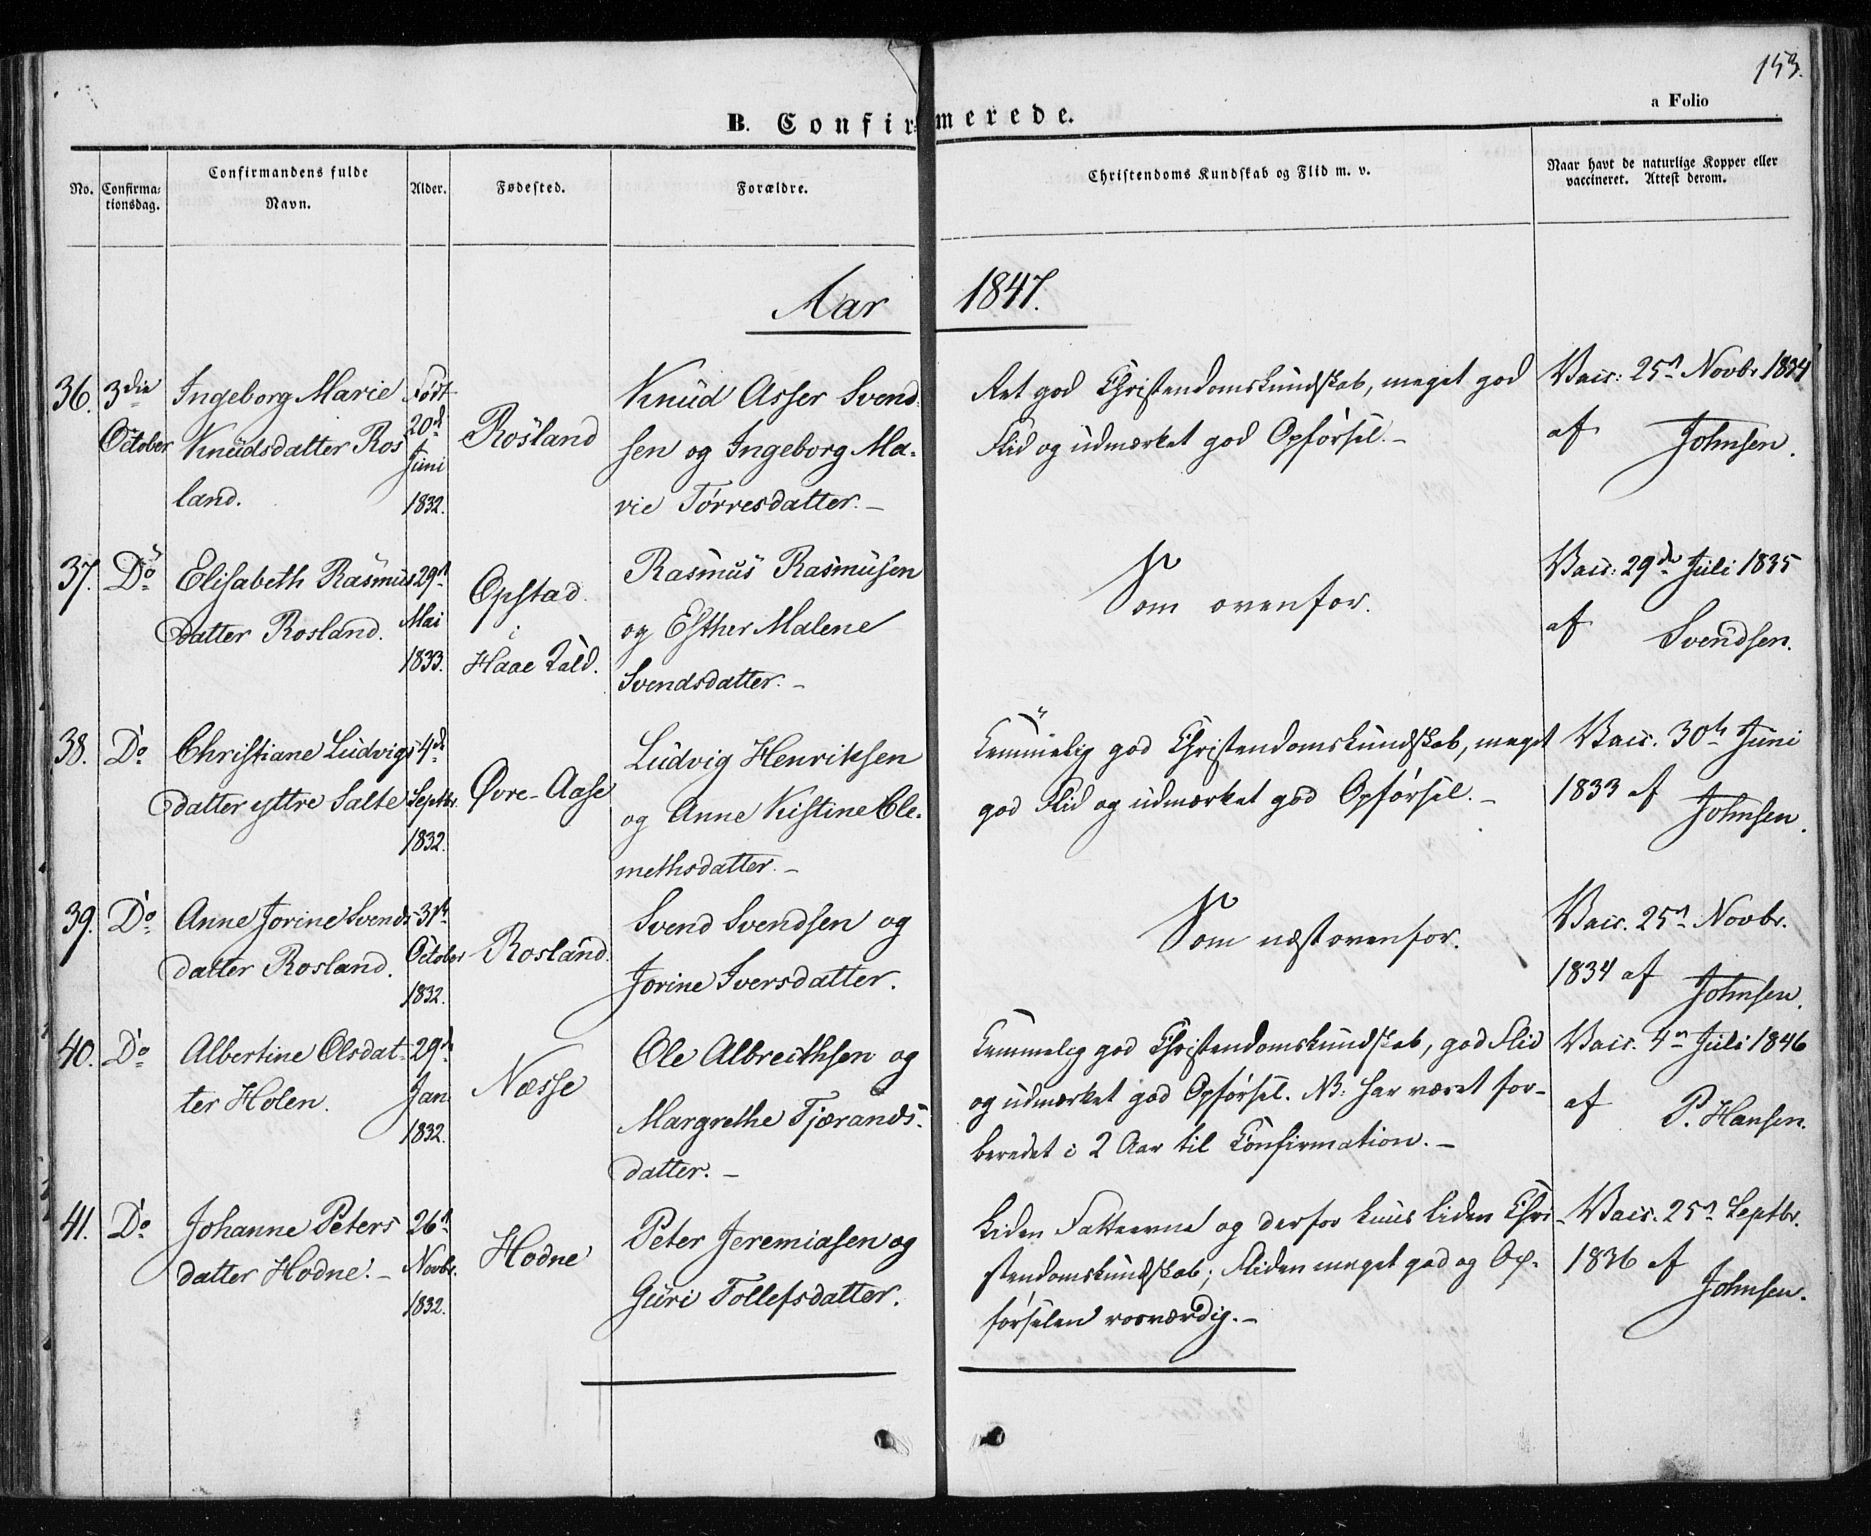 153.
a Folio
B. Confirmerede.
No.
Confirma-
tionsdag.
Confirmandens fulde
Navn.
Alder.
Fødested.
Forældre.
Christendoms Kundskab og Flid m. v.
Naar havt de naturlige Kopper eller
vaccineret. Attest derom.
Aar 1847.
36.
3die
October
Ingeborg Marie
Knudsdatter Ros
land.
Født
20d
Juni
1832.
Rosland
Knud Asser Svend
sen og Ingeborg Ma-
rie Tørresdatter. –
Ret god Christendomskundskab, meget god
Flid og udmærket god Opførsel. –
Vacc: 25n Novbr 1834
af Johnsen.
37.
Do
Elisabeth Rasmus
datter Rosland.
29n
Mai
1833.
Opstad
i
Haae Tald.
Rasmus Rasmusen
og Esther Malene
Svendsdatter. –
Som ovenfor.
Vacc: 29de Juli 1835
af Svendsen.
38.
Do
Christiane Ludvigs
datter yttre Salte
4de
Septbr.
1832.
Øvre-Aase
Ludvig Henriksen
og Anne Kistine Cle-
methsdatter. –
Temmelig god Christendomskundskab, meget
god Flid og udmærket god Opførsel. –
Vacc. 30te Juni
1833 af
Johnsen.
39.
Do
Anne Jorine Svends
datter Rosland.
31te
October
1832.
Rosland.
Svend Svendsen og
Jorine Iversdatter.
Som næstovenfor.
Vacc. 25n Novbr.
1834 af
Johnsen.
40.
Do
Albertine Olsdat-
ter Holen.
29n
Jan.
1832.
Næsse
Ole Albrecthsen og
Margrethe Tjærands-
datter. –
Temmelig god Christendomskundskab, god Flid
og udmærket god Opførsel. NB: har været for-
beredet i 2 Aar til Confirmation. –
Vacc. 4n Juli 1846
af P. Hansen.
41.
Do
Johanne Peters
datter Hodne. –
26n
Novbr.
1832.
Hodne
Peter Jeremiasen og
Guri Tollefsdatter.
Liden Fatteevne og derfor kuns liden Chri-
stendomskundskab; Fliden meget god og Op-
førselen rosværdig. –
Vacc. 25n Septbr.
1836 af
Johnsen.